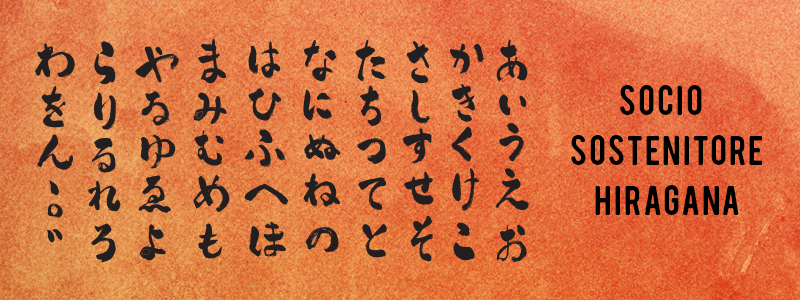 あいうえお
かきくけこ
さしすせそ
たちつてと
なにぬねの
はひふへほ
まみむめも
やゐゆゑよ
らりるれろ
わをん、。゛
SOCIO
SOSTENITORE
HIRAGANA